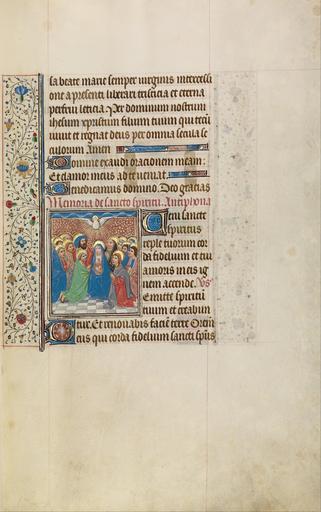 sa beate marie semper virginis intercessi
one a presenti liberari tristicia et eterna
perfrui leticia. Per dominum nostrum
ihesum xpristum filium tuum qui tecū
viuit et regnat deus per omnia secula se
culorum Amen
Domine exaudi oracionem meam.
Et clamor meus ad te ueniat.
Benedicamus domino. Deo gracias
Memoria de sancto spiritu. Antiphona
Veni sancte
spiritus
reple tuorum cor
da fidelium et tui
amoris in eis ig
nem accende. Vs
Emitte spiritū
tuum et creabun
tur. Et renouabis faciē terre Orem
Deus qui corda fidelium sancti spūs